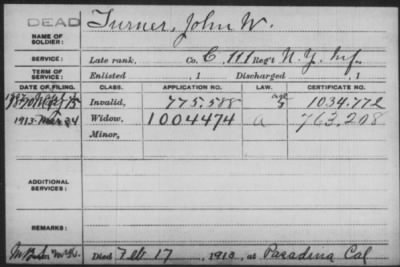 DEAD
NAME OF SOLDIER: Turner, John W.
SERVICE: Late rank, Co. C, 111 Reg't N.Y. Inf.
TERM OF SERVICE: Enlisted , 1 Discharged , 1
DATE OF FILING. CLASS. APPLICATION NO. LAW. CERTIFICATE NO.
Invalid, 775.588 1034.772
1913 24 Widow, 1004474 a 763,208
Minor,
ADDITIONAL SERVICES:
REMARKS:
Died Feb 17, 1913, at Pasadina Cal